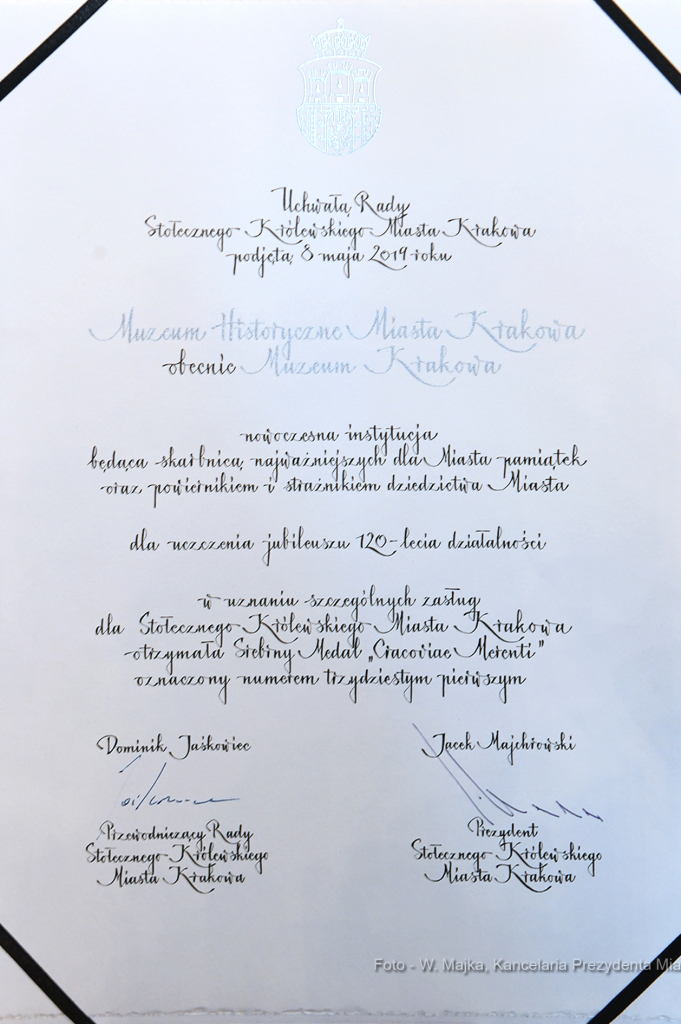 Uchwałą Rady
Stołecznego Królewskiego Miasta Krakowa
podjętą 8 maja 2019 roku
Muzeum Historyczne Miasta Krakowa
obecnie Muzeum Krakowa
nowoczesna instytucja
będąca skarbnicą najważniejszych dla Miasta pamiątek
oraz powiernikiem i strażnikiem dziedzictwa Miasta
dla uczczenia jubileuszu 120-lecia działalności
w uznaniu szczególnych zasług
dla Stołecznego Królewskiego Miasta Krakowa
otrzymała Srebrny Medal „Cracoviae Merenti"
oznaczony numerem trzydziestym pierwszym
Dominik Jaśkowiec
Jacek Majchrowski
Przewodniczący Rady
Stołecznego Królewskiego
Miasta Krakowa
Prezydent
Stołecznego Królewskiego
Miasta Krakowa
Foto - W. Majka, Kancelaria Prezydenta Mia